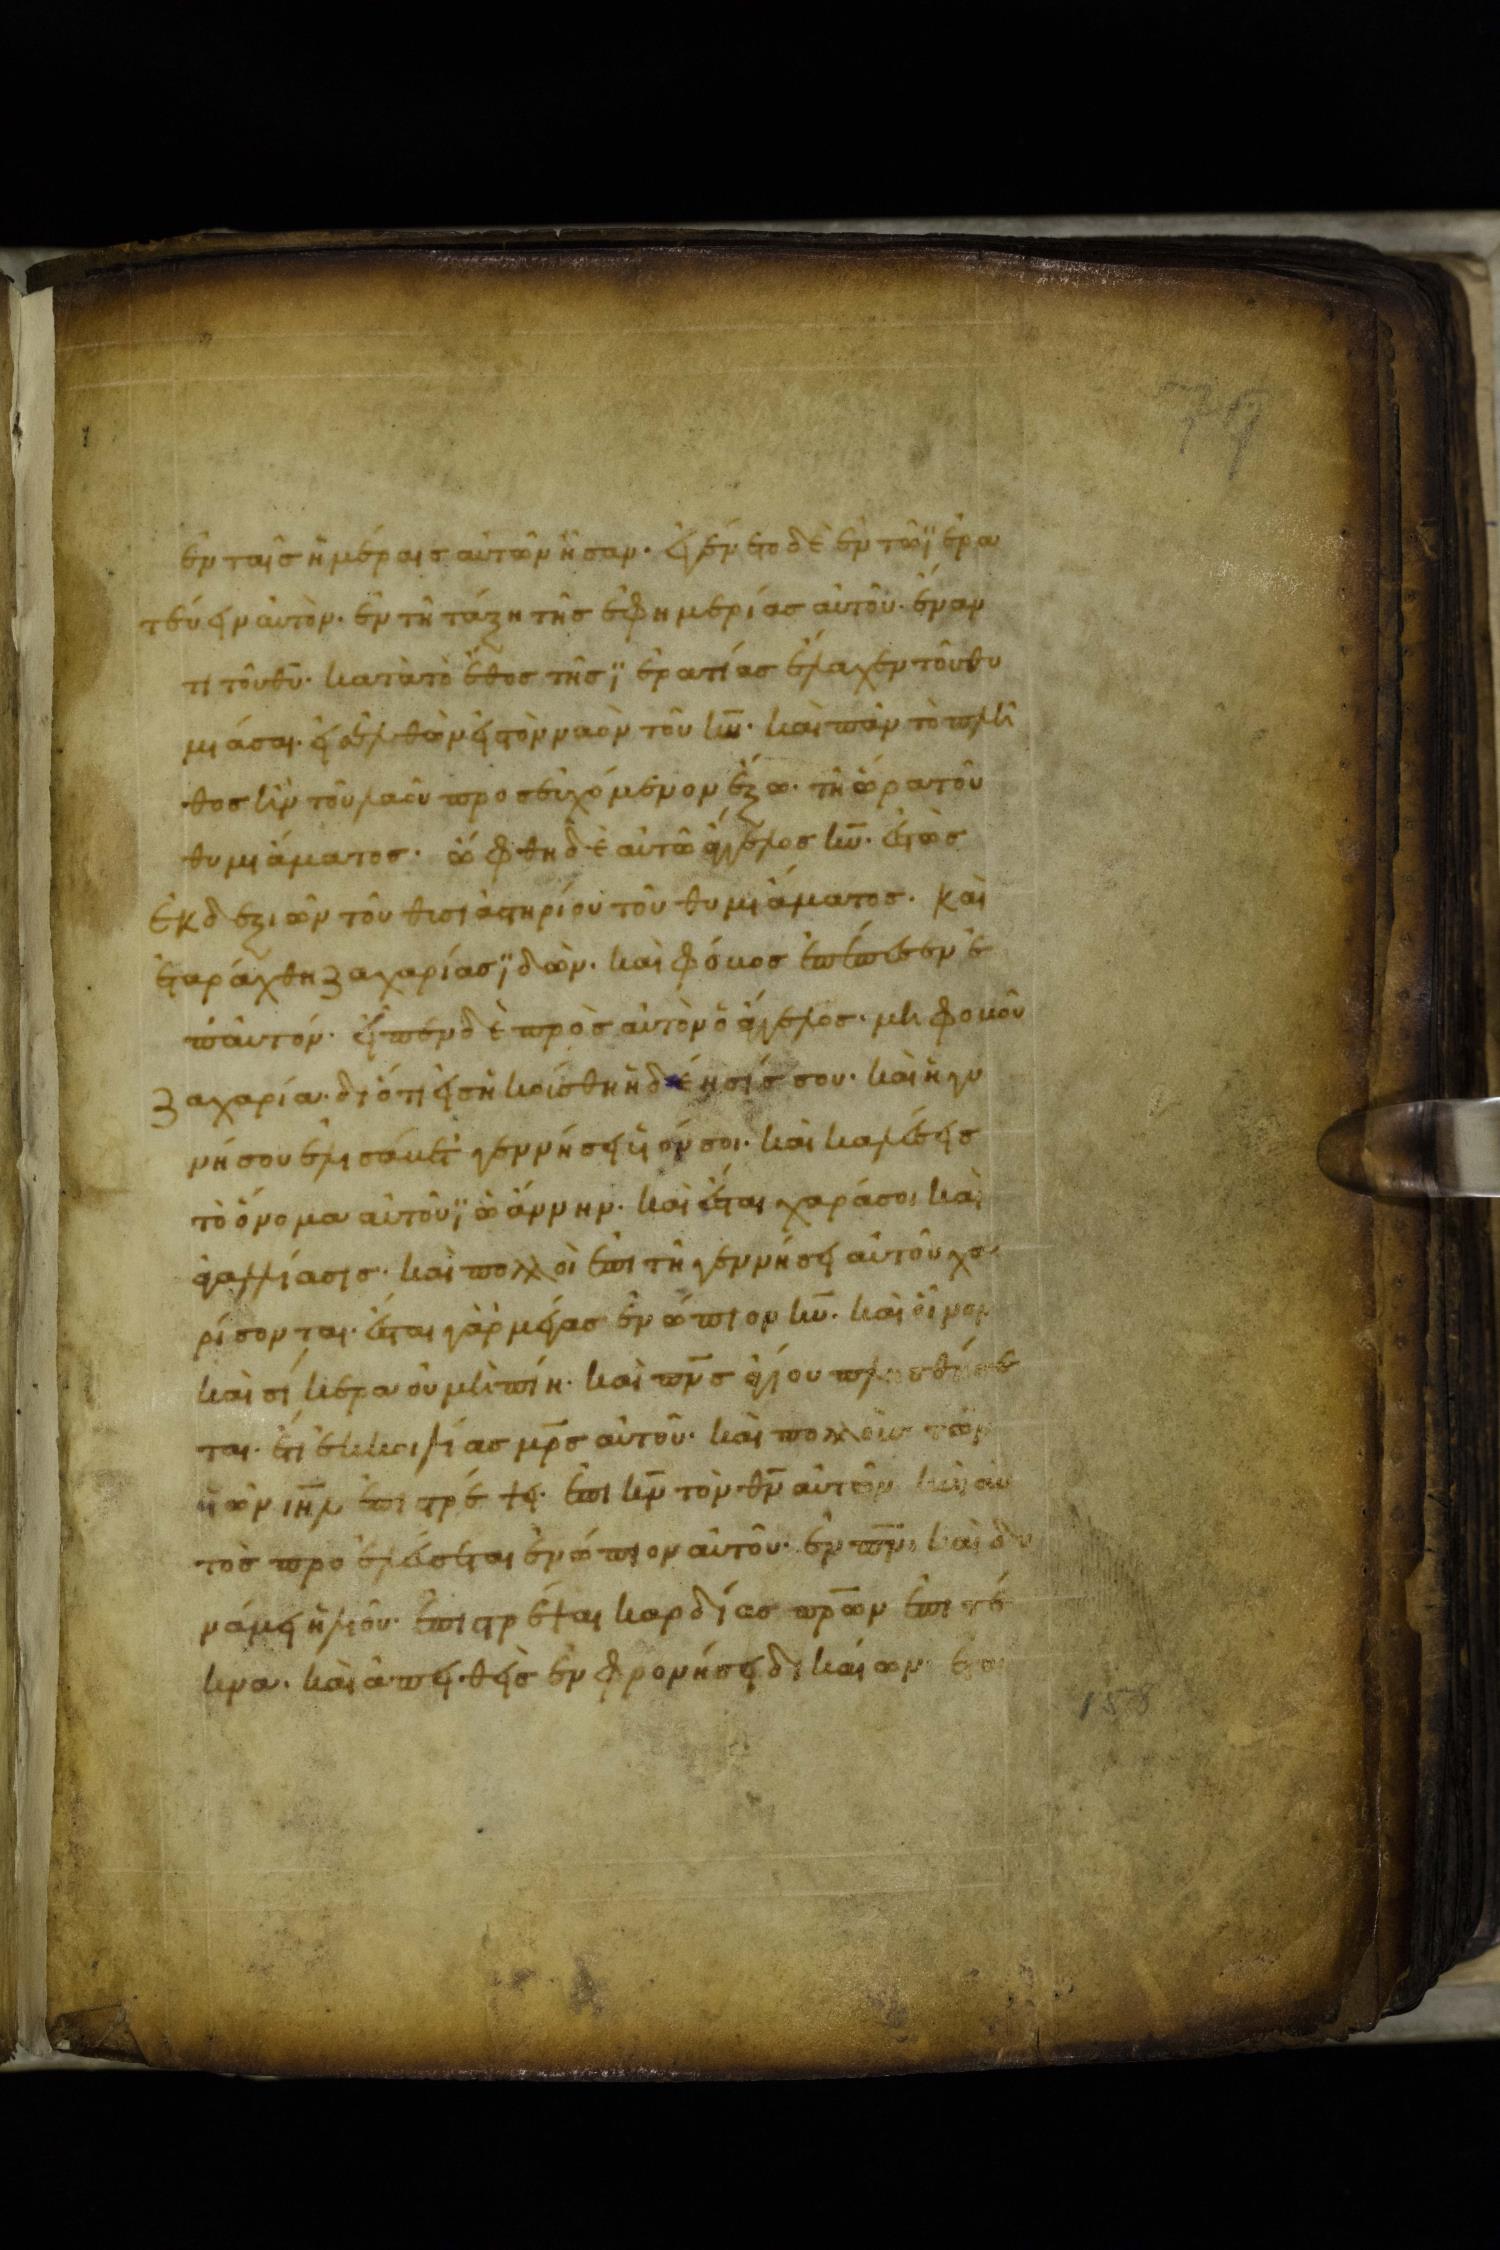 79
ἐν ταῖς ἡμέραις αὐτῶν ἦσαν· ἐγένετο δὲ ἐν τῶ ϊἑρα
τεύειν αὐτὸν· ἐν τῆ τάξη τῆς ἐφημερίας αὐτοῦ· ἔναν
τι τοῦ θῦ· κατὰ τὸ ἔθος τῆς ϊἑρατίας ἔλαχεν τοῦ θυ
μιάσαι· εἰσελθὼν εἰς τὸν ναὸν τοῦ κυ̅· καὶ πᾶν τὸ πλῆ
θος ἦν τοῦ λαοῦ προσευχόμενον ἔξω· τῆ ὥρα τοῦ
θυμιάματος· ὤφθη δὲ αὐτῶ ἄγγελος κυ̅· ἑστὼς
ἐκ δεξιῶν τοῦ θυσιαστηρίου τοῦ θυμιάματος· καὶ
ἐταράχθη ζαχαρίας ϊδὼν· καὶ φόβος ἐπέπεσεν ἐ
π᾽ αὐτόν· εἶπεν δὲ πρὸς αὐτὸν ὁ ἄγγελος· μὴ φοβοῦ
ζαχαρία· διότι εἰσηκούσθη ἡ δέησίς σου· καὶ ἡ γυ
νή σου ἐλισάβετ γεννήσει υἱόν σοι· καὶ καλέσεις
τὸ ὄνομα αὐτοῦ ϊὠάννην· καὶ ἔσται χαρά σοι καὶ
ἀγαλλίασις· καὶ πολλοὶ ἐπὶ τῆ γεννήσει αὐτοῦ χα
ρίσονται· ἔσται γὰρ μέγας ἐνώπιον κυ̅· καὶ οἶνον
καὶ σίκερα οὐ μὴ πίη· καὶ πν̅ς ἁγίου πλησθήσε
ται· ἔτι ἐκ κοιλίας μρ̅ς αὐτοῦ· καὶ πολλοὺς τῶν
υἱῶν ιη̅λ ἐπιστρέψει· ἐπὶ κν̅ τὸν θν̅ αὐτῶν καὶ αὐ
τὸς προελεύσεται ἐνώπιον αὐτοῦ· ἐν πν̅ι καὶ δυ
νάμει ἡλιοῦ· ἐπιστρέψαι καρδίας πρ̅ων ἐπὶ τέ
κνα· καὶ ἀπειθεῖς ἐν φρονήσει δικαίων· ἑτοι
158